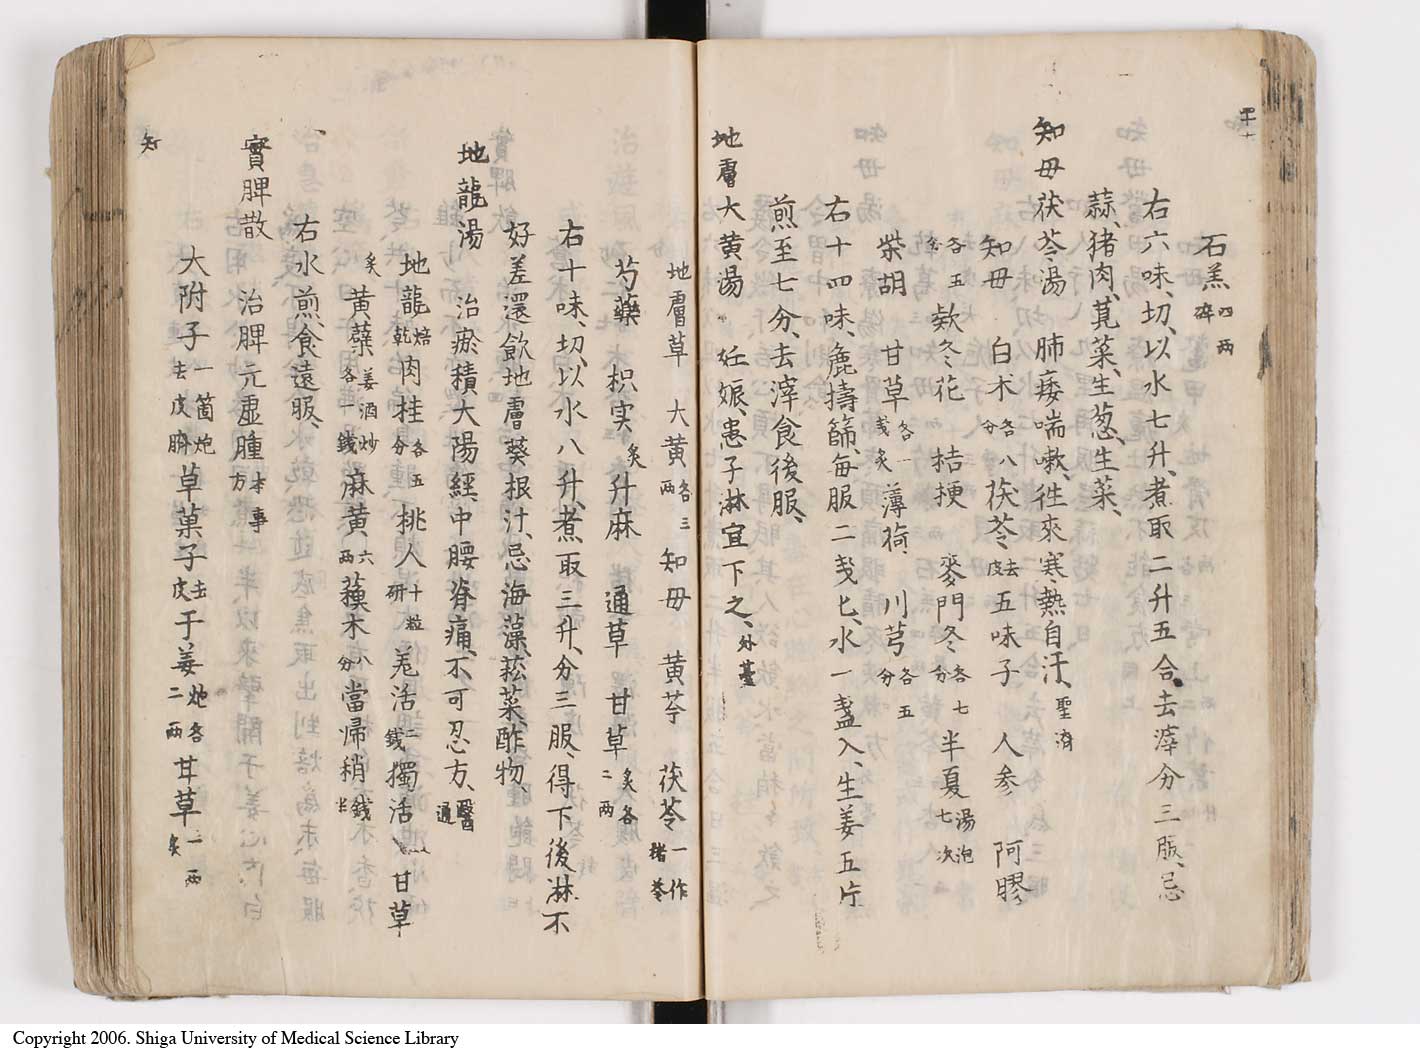 四十
石羔四両碎
右六味、切、以水七升、煮取二升五合、去滓分三服、忌
蒜、猪肉、莧菜、生葱、生菜、
知母茯苓湯　肺痿喘嗽、徃來寒熱自汗、聖済
知母　白术各八分茯苓、去皮五味子　人参　阿膠
各五分欸冬花　桔梗　麥門冬各七分半夏湯泡七次
柴胡　甘草各一戔炙薄荷、川芎各五分
右十四味、麁擣篩、毎服二戔匕、水一盞入、生姜五片
煎至七分、去滓食後服、
地膚大黄湯　妊娠、患子淋宜下之、外臺
地膚草　大黄各三両知母　黄芩　茯苓一作猪苓
芍藥　枳実炙升麻　通草　甘草炙各二両
右十味、切、以水八升、煮取三升、分三服、得下後、淋不
好差還飲地膚葵根汁、忌海藻、菘菜、酢物、
地龍湯　治瘀積大陽經、中腰脊痛、不可忍方、醫通
地龍焙乾肉桂各五分桃人十粒研羗活二錢獨活、甘草
炙黄蘗姜酒炒各一錢麻黄、六両蘓木八分當帰稍錢半
右水煎、食遠服、
實脾散　治脾元虚腫本事方
大附子一箇炮去皮臍草菓子去皮于姜炮各二両甘草一両炙
知